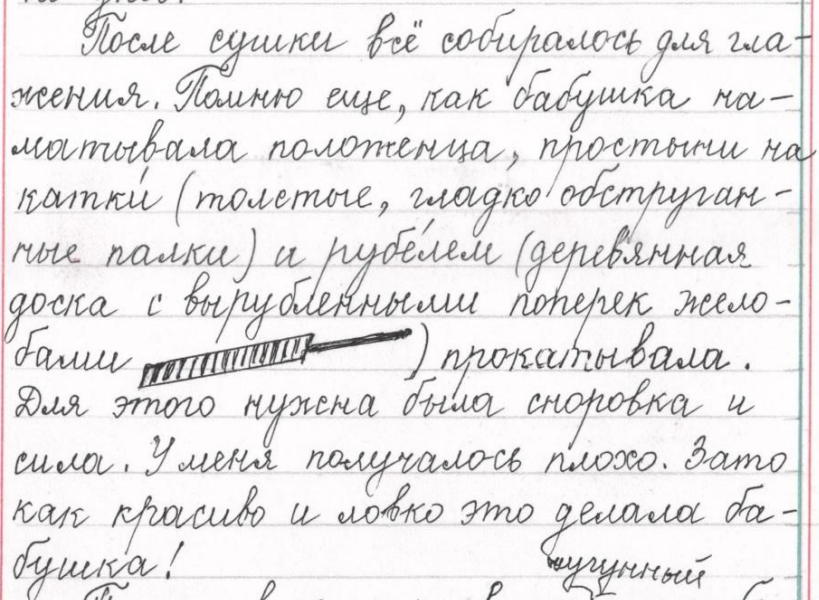 После сушки всё собиралось для гла-
жения. Помню еще, как бабушка на-
матывала положенца, простыни на
катки́ (толстые, гладко обструган-
ные палки) и рубе́лем (деревянная
доска с вырубленными поперек жело-
бами ) прокатывала.
Для этого нужна была сноровка и
сила. У меня получалось плохо. Зато
как красиво и ловко это делала ба-
бушка!
чугунный